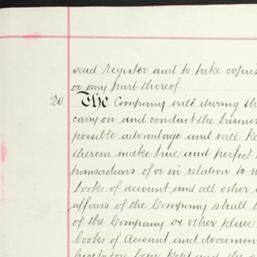 said register and to take copies
or any part thereof
20 The Company will during the
carry on and conduct the business
possible advantage and will
therein make true and perfect
transactions of or in relation to
books of account and all other
affairs of the Company shall
of the Company or other place
books of Account and document
kept and the